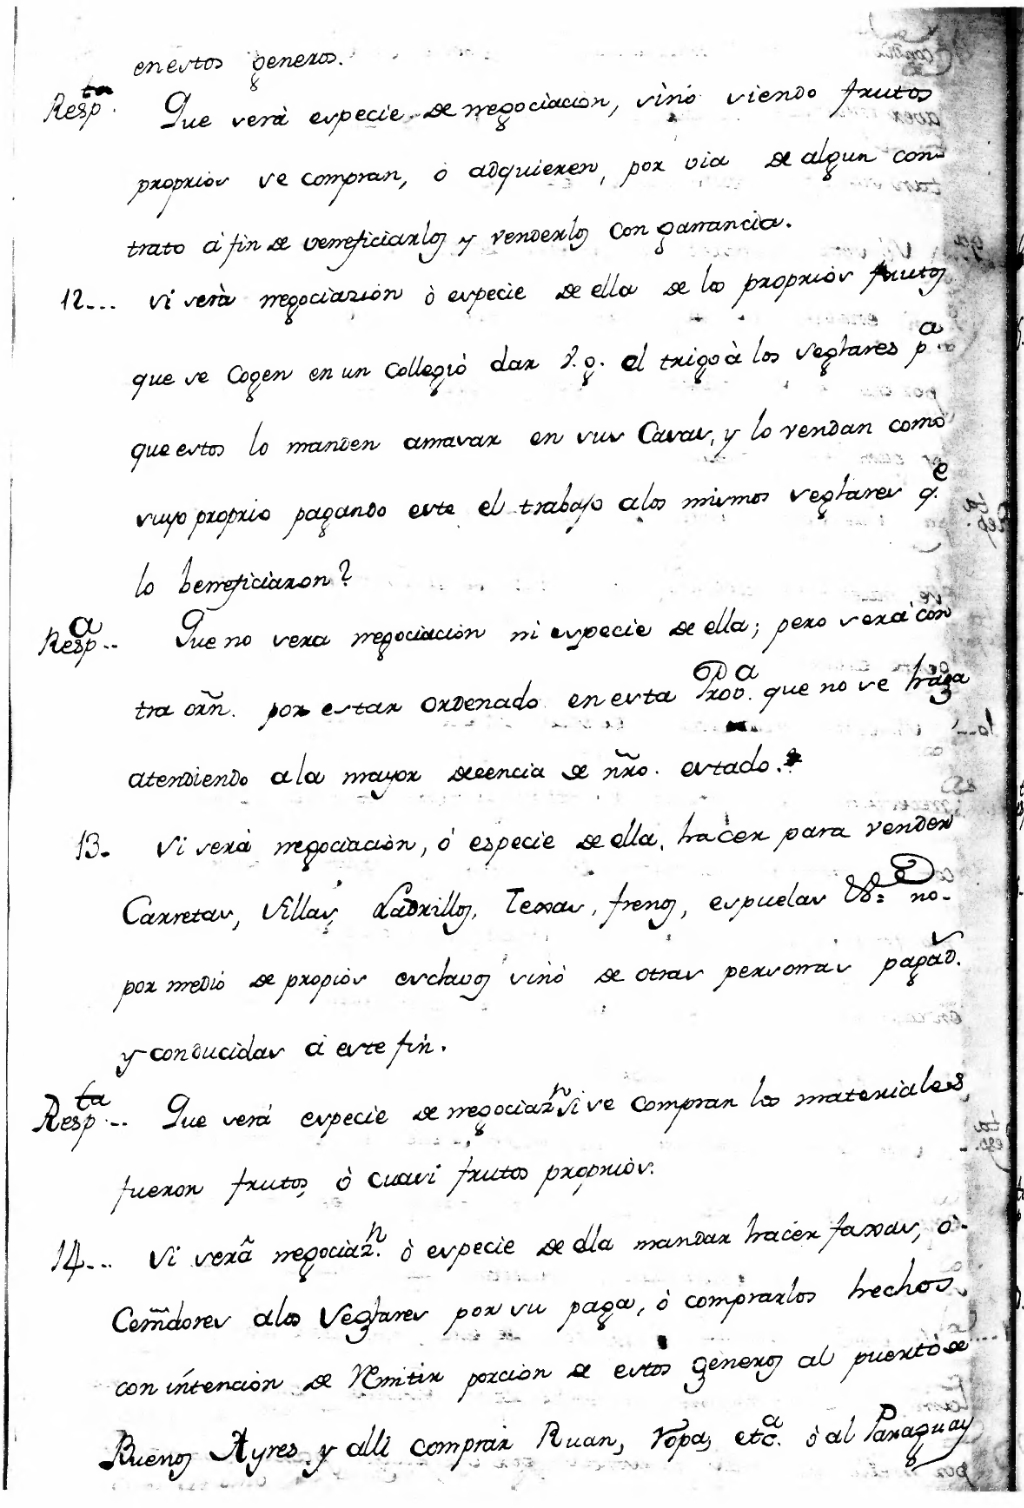 en estos generos.
Resp.ta Que será especie de negociación, sinó siendo frutos
proprios se compran, ó adquieren, por via de algun con-
trato á fin de beneficiarlos y venderlos con ganancia.
12... Si será negociazión ò especie de ella de los proprios frutos
que se cogen en un Collegió dar v. g. el trigo à los seglares p.a
que estos lo manden amasar en sus Casas, y lo vendan como
suyo proprio pagando este el trabajo a los mismos seglares q.e
lo beneficiaron?
Resp.a .. Que no sera negociación ni especie de ella; pero será con
tra orñ. por estar ordenado en esta Prov.a que no se haga
atendiendo a la mayor decencia de ñro. estado.
13. Si será negociación, ó especie de ella, hacer para vender
Carretas, Sillas, Ladrillos, Texas, frenos, espuelas &c. no-
por medió de propios esclavos sinó de otras personas pagad.s
y conducidas á este fin.
Resp.ta .. Que será especie de negociaz.n si se compran los materiales,
fueron frutos, ó cuasi frutos proprios.
14... Si será negociaz.n ò especie de ella mandar hacer faxas, ó
Com̃dores a los Seglares por su paga, ò comprarlos hechos
con inténción de Remitir porción de estos generos al puertó de
Buenos Ayres y alli comprar Ruan, ropa, etc.a ò al Paraguay